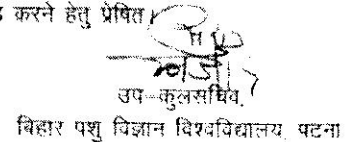 करने हेतु प्रेषित।
उप-कुलसचिव,
बिहार पशु विज्ञान विश्वविद्यालय, पटना